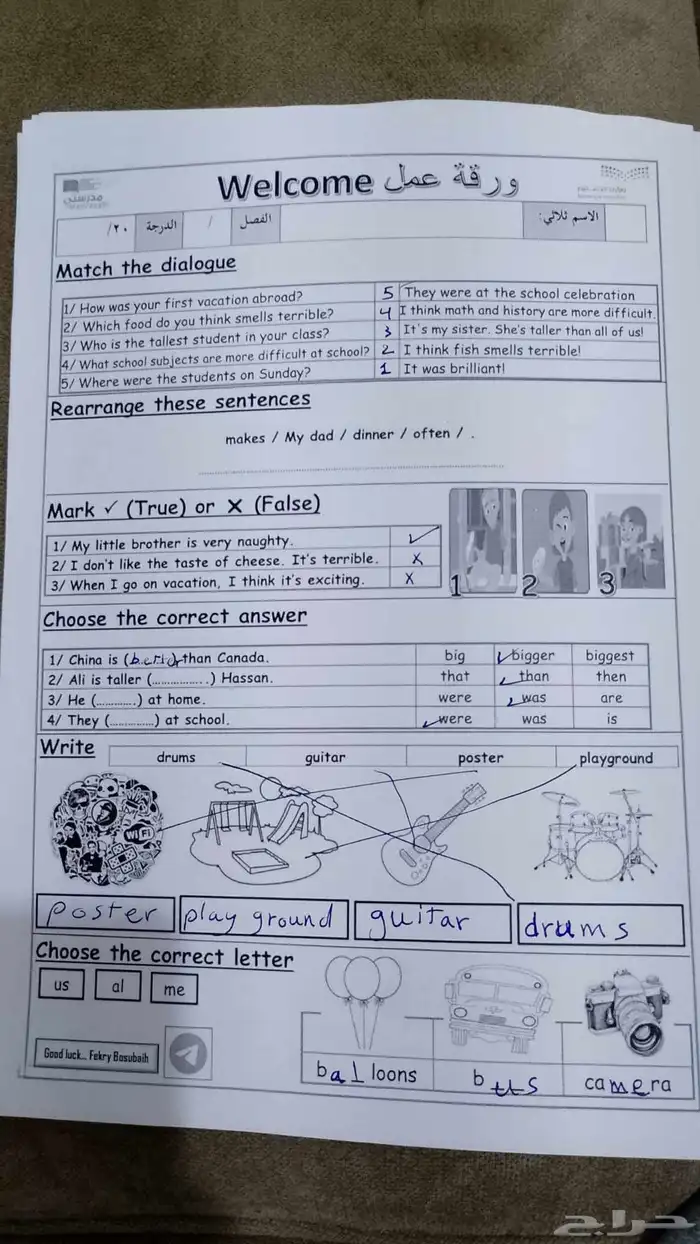 ورقة عمل Welcome
مدرستي
الاسم ثلاثي: الفصل / الدرجة /٢٠
Match the dialogue
1/ How was your first vacation abroad? 5 They were at the school celebration
2/ Which food do you think smells terrible? 4 I think math and history are more difficult.
3/ Who is the tallest student in your class? 3 It's my sister. She's taller than all of us!
4/ What school subjects are more difficult at school? 2 I think fish smells terrible!
5/ Where were the students on Sunday? 1 It was brilliant!
Rearrange these sentences
makes / My dad / dinner / often / .
Mark ✓ (True) or X (False)
1/ My little brother is very naughty. ✓
2/ I don't like the taste of cheese. It's terrible. X
3/ When I go on vacation, I think it's exciting. X
1 2 3
Choose the correct answer
1/ China is ( ) than Canada. big ✓ bigger biggest
2/ Ali is taller (................) Hassan. that ✓ than then
3/ He (...........) at home. were ✓ was are
4/ They (............) at school. ✓ were was is
Write
drums guitar poster playground
WiFi
poster play ground guitar drums
Choose the correct letter
us al me
Good luck... Fekry Bosubaih
bal loons bus camera
حراج